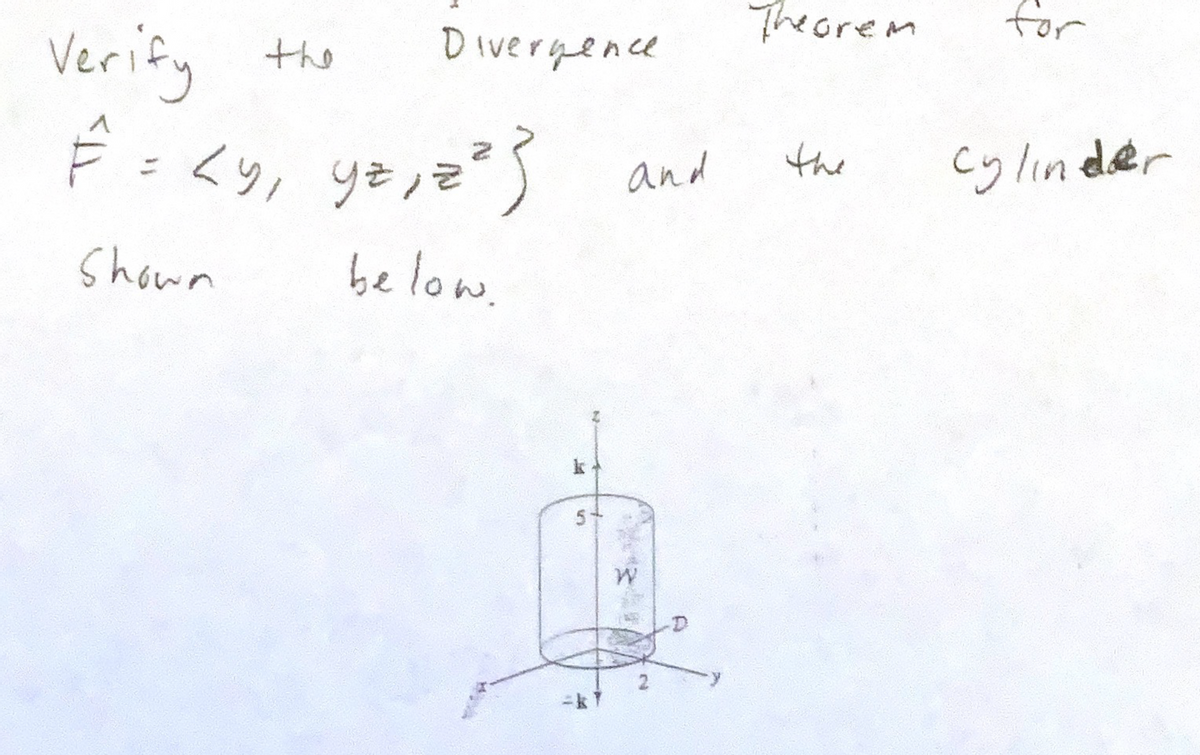 Verify the Divergence Theorem for
F̂ = <y, yz, z²} and the cylinder
shown below.
z
k
5
W
D
x
2
y
-k